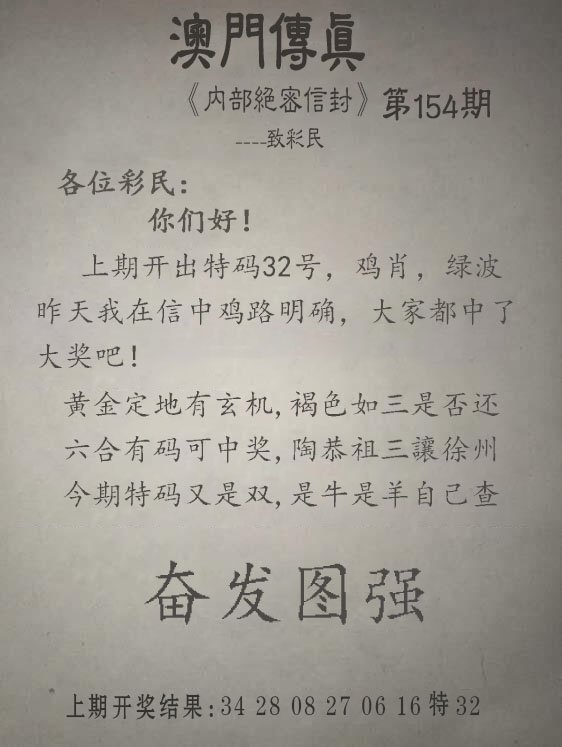 澳門傳眞
《内部絕密信封》第154期
----致彩民
各位彩民：
你们好！
上期开出特码32号，鸡肖，绿波
昨天我在信中鸡路明确，大家都中了
大奖吧！
黄金定地有玄机,褐色如三是否还
六合有码可中奖,陶恭祖三讓徐州
今期特码又是双,是牛是羊自己查
奋发图强
上期开奖结果:34 28 08 27 06 16 特 32